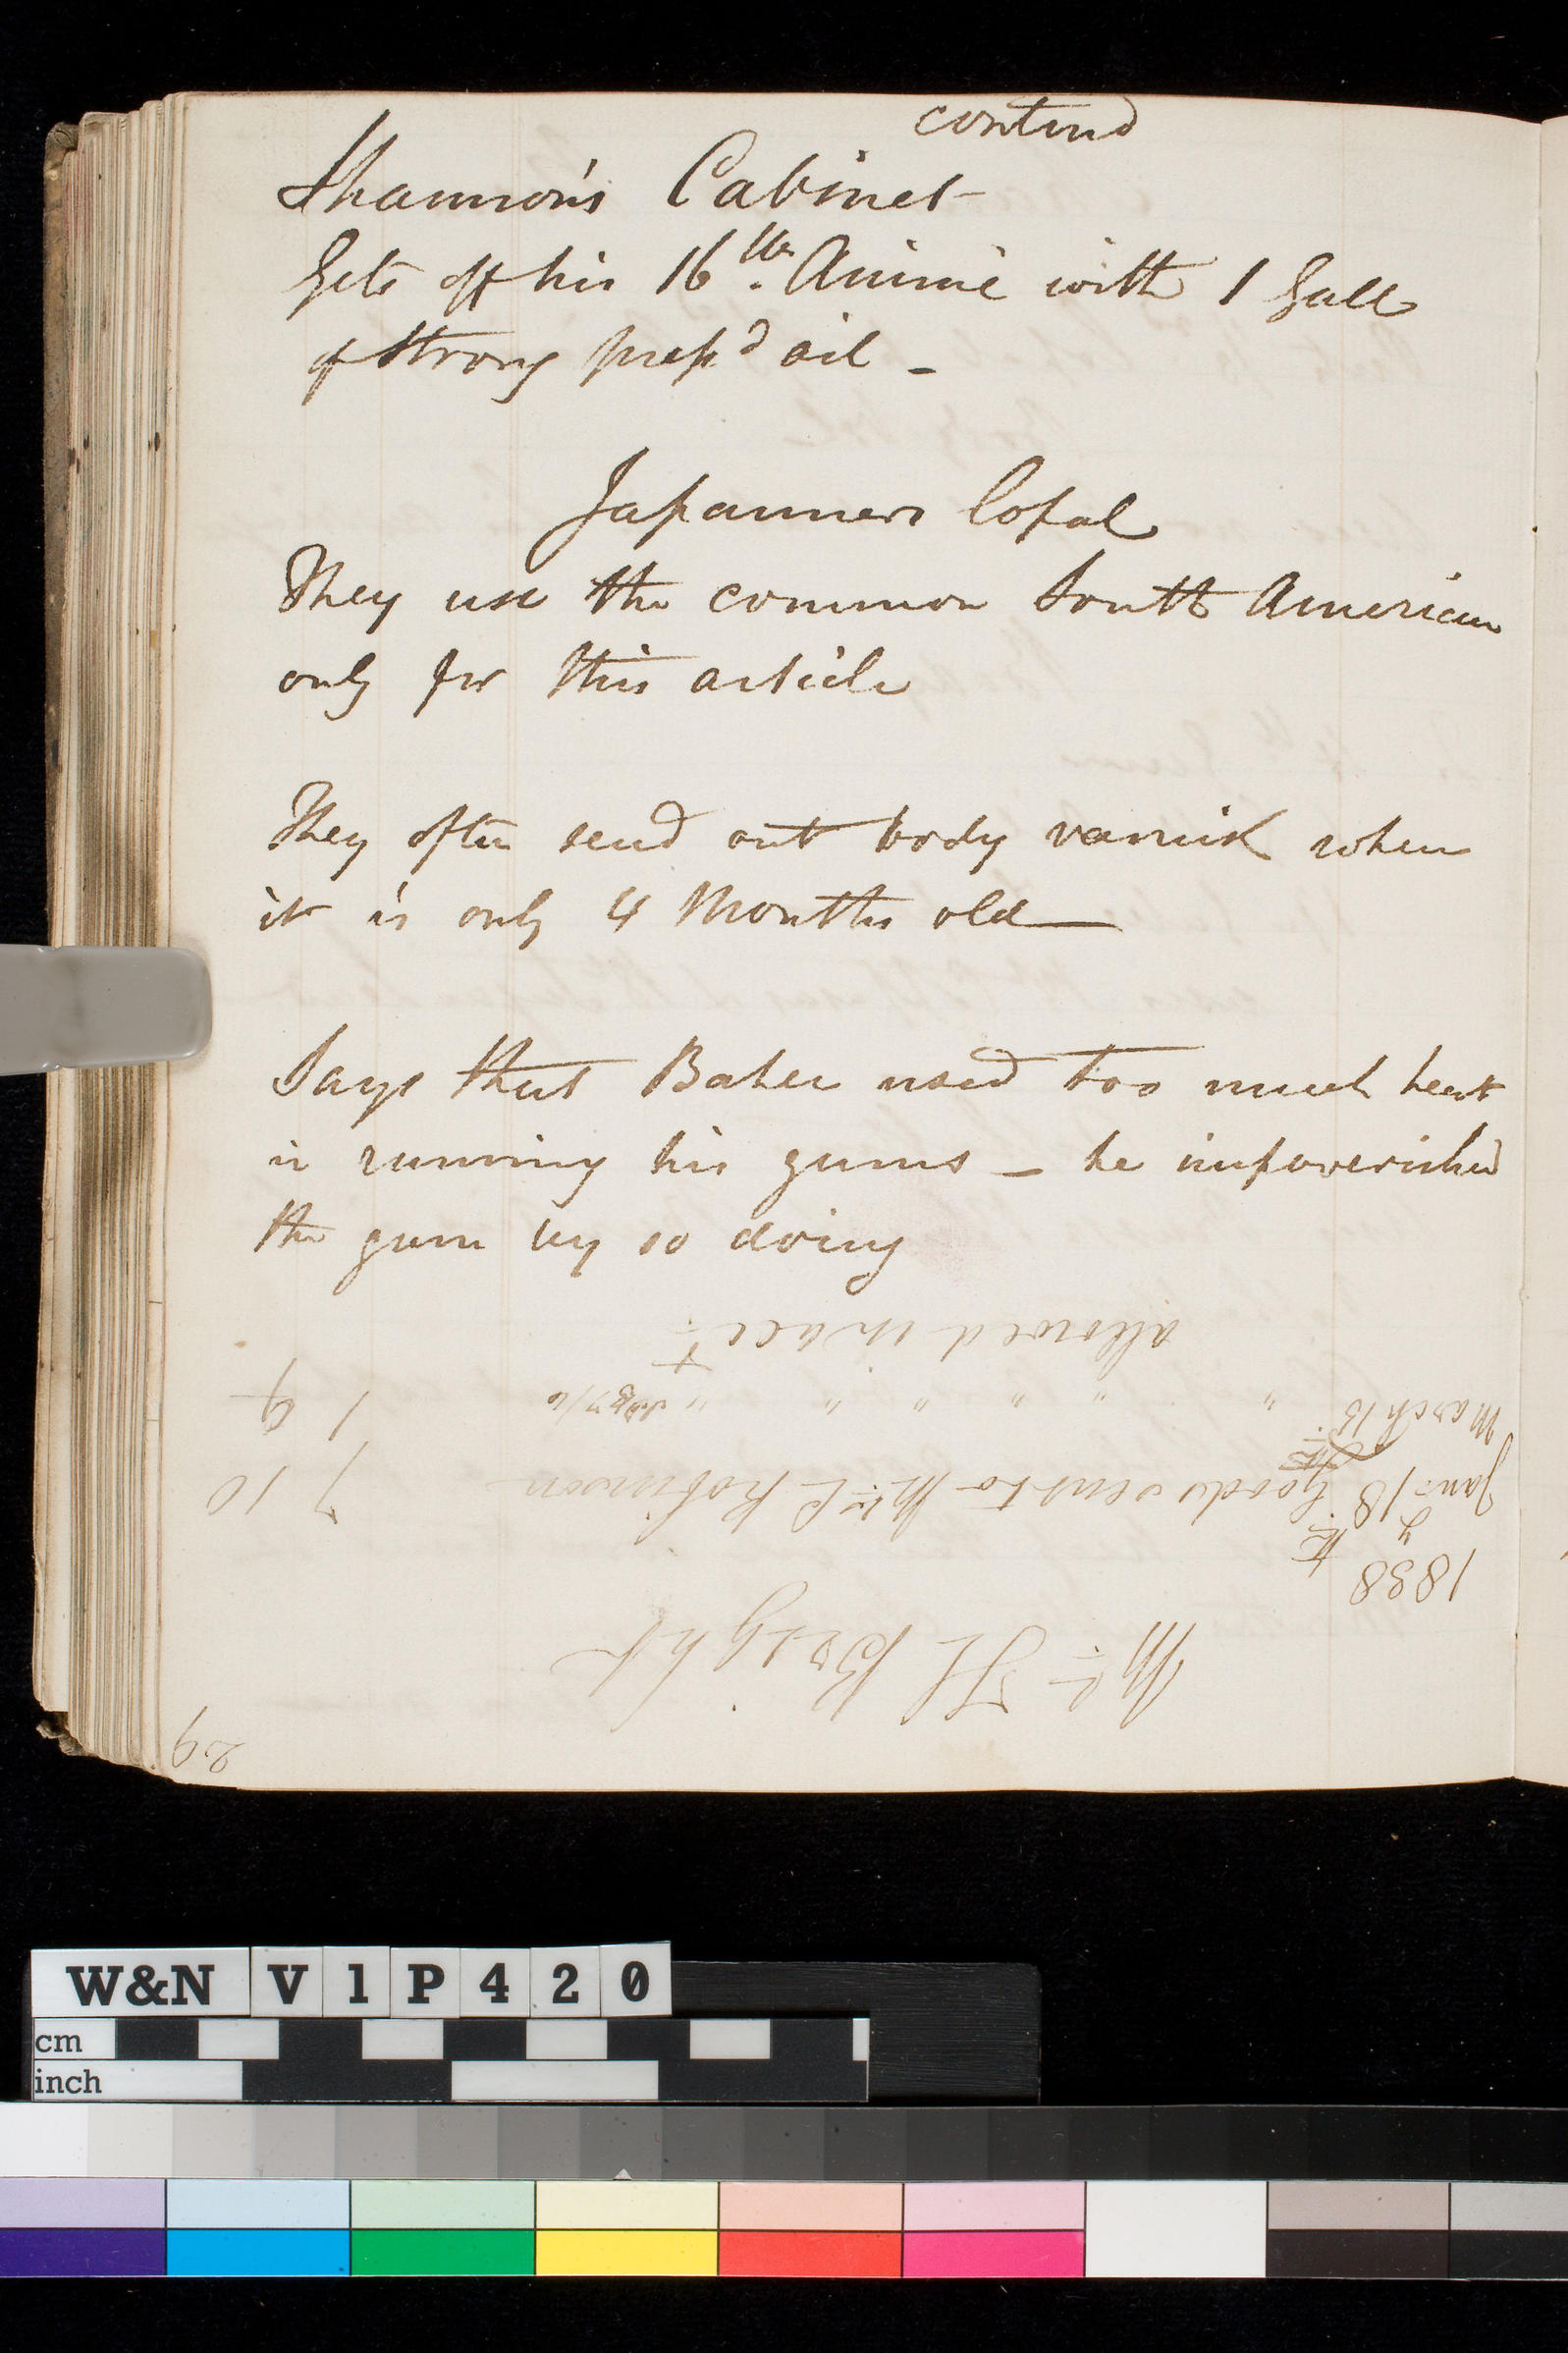 contind
Shannon's Cabinet
Gets off his 16 lbs. Animé with 1 Gall
of strong prep'd oil –
Japanners Copal
They use the common South American
only for this article
They often send out body varnish when
it is only 4 Months old
Says that Baker used too much heat
in running his gums – he impoverished
the gum by so doing
29
Mr H Bright
1838
Jany 18th Goods sent to Mr C Robinson 7 10
March 15 " " " " " " 7/6 1 9
allowed in acct
W&N V1P420
cm
inch